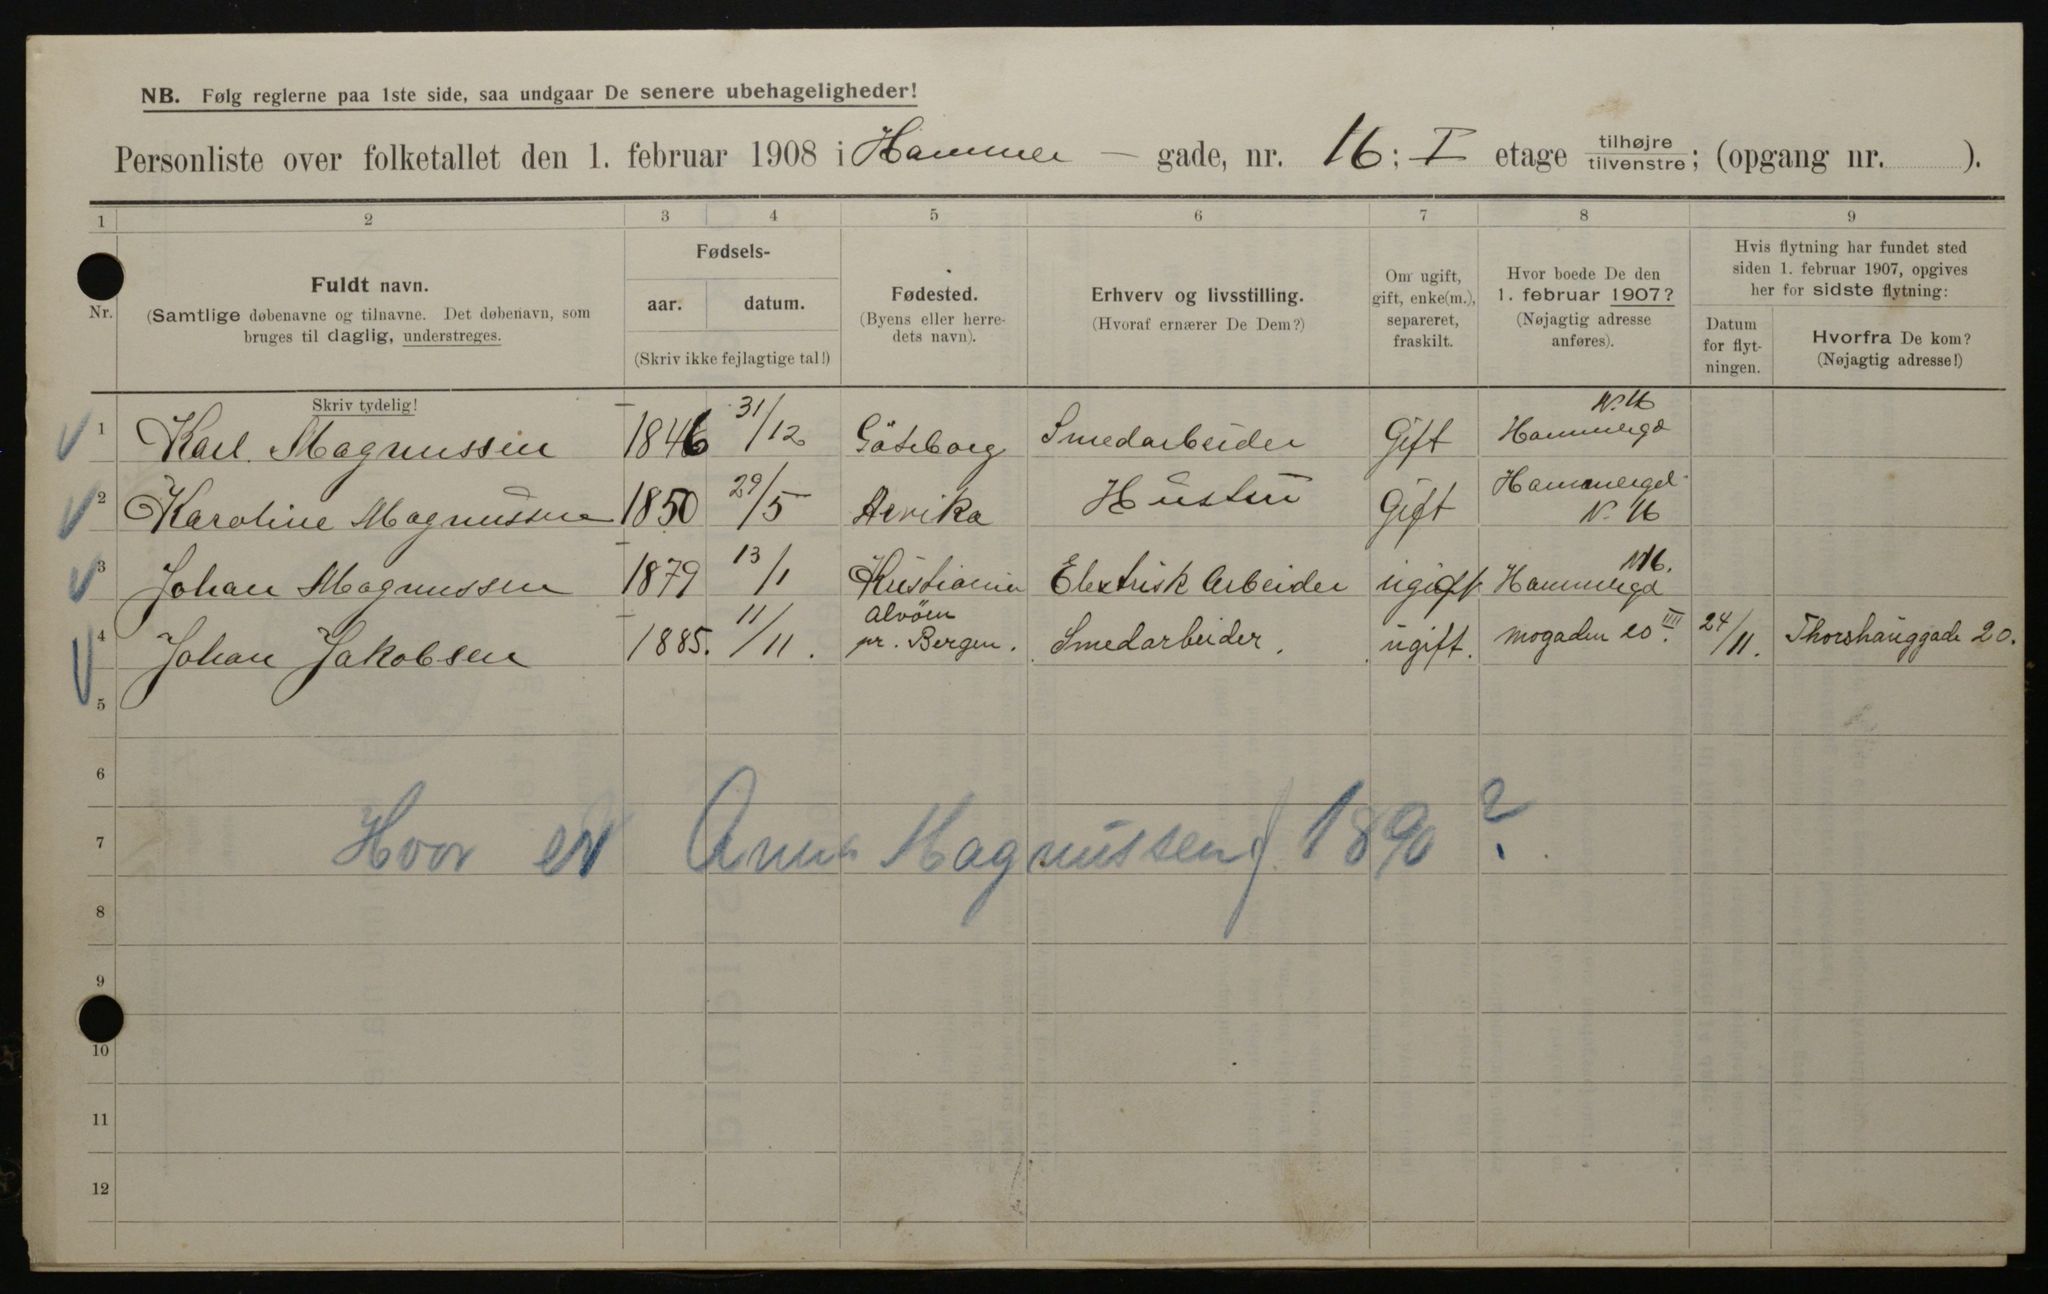 NB. Følg reglerne paa 1ste side, saa undgaar De senere ubehageligheder!
Personliste over folketallet den 1. februar 1908 i Hammer — gade, nr. 16; I etage tilhøjre/tilvenstre; (opgang nr. ).
1 2 3 4 5 6 7 8 9
Nr.
Fuldt navn.
(Samtlige døbenavne og tilnavne. Det døbenavn, som
bruges til daglig, understreges.
Fødsels-
aar. datum.
(Skriv ikke fejlagtige tal!)
Fødested.
(Byens eller herre-
dets navn).
Erhverv og livsstilling.
(Hvoraf ernærer De Dem?)
Om ugift,
gift, enke(m.),
separeret,
fraskilt.
Hvor boede De den
1. februar 1907?
(Nøjagtig adresse
anføres).
Hvis flytning har fundet sted
siden 1. februar 1907, opgives
her for sidste flytning:
Datum
for flyt-
ningen.
Hvorfra De kom?
(Nøjagtig adresse!)
Skriv tydelig!
1 Karl Magnussen 1846 31/12 Göteborg Smedarbeider Gift Hammergd N. 16
2 Karoline Magnussen 1850 29/5 Arvika Hustru Gift Hammergd. N. 16
3 Johan Magnussen 1879 13/1 Kristiania Elektrisk Arbeider ugift Hammergd N 16.
4 Johan Jakobsen 1885. 11/11. Alvöen pr. Bergen. Smedarbeider. ugift. Mogaden 20 III. 24/11. Thorshauggade 20.
5
6
7 Hvor er Anna Magnussen f. 1890?
8
9
10
11
12